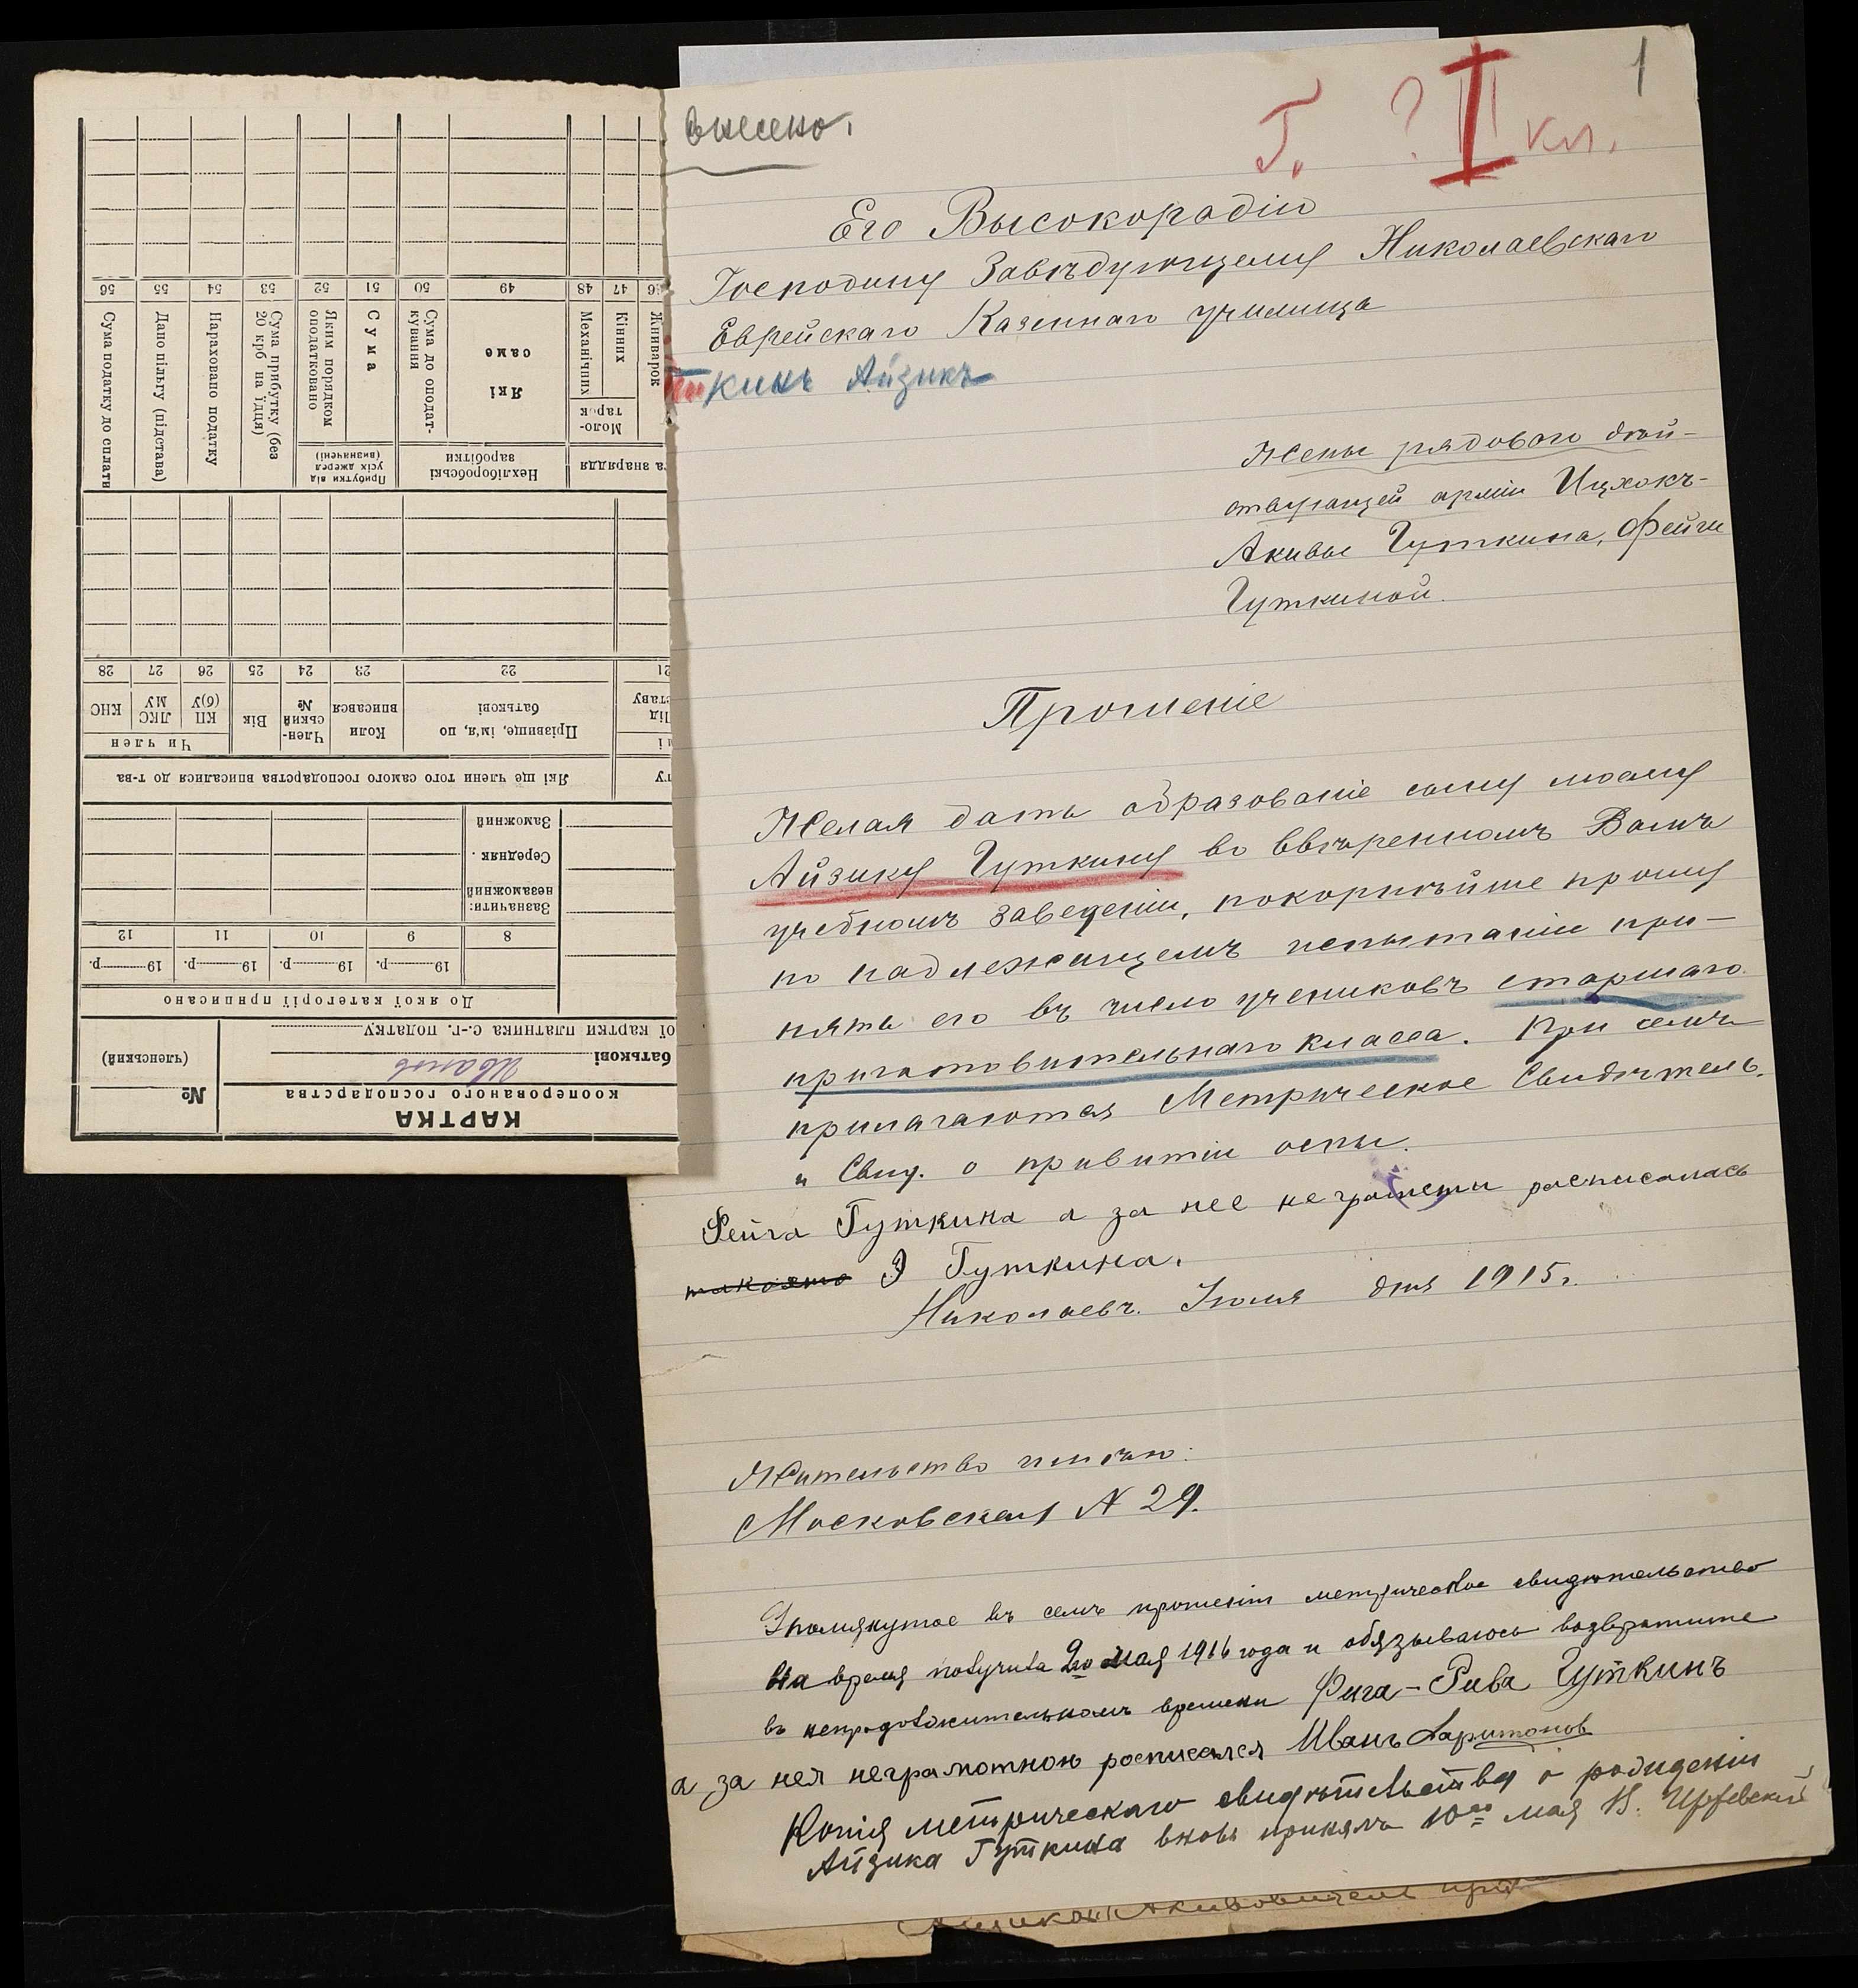 внесено.
Г. ? II кл.
1
Его Высокородію
Господину Завѣдующему Николаевскаго
Еврейскаго Казеннаго училища
ткинъ Айзикъ
Жены рядового дѣй-
ствующей арміи Ицхокъ-
Акивы Гуткина, Фейги
Гуткиной.
Прошеніе
Желая дать образованіе сыну моему
Айзику Гуткину во ввѣренномъ Вамъ
учебномъ заведеніи, покорнѣйше прошу
по надлежащемъ испытаніи при-
нять его въ число учениковъ старшаго
приготовительнаго класса. При семъ
прилагаются Метрическое Свидѣтель.
и Свид. о привитіи оспы.
Фейга Гуткина а за нее неграмоты расписалась
Э Гуткина.
Николаевъ. Іюля дня 1915 г.
Жительство имѣю:
Московская N 29.
Упомянутое въ семъ прошеніи метрическое свидѣтельство
на время получила 2го мая 1916 года и обязываюсь возвратите
въ непродолжительномъ времени Фига-Рива Гуткинъ
а за нея неграмотною росписался Иванъ Харитонов
Копія метрическаго свидѣтельства о рожденіи
Айзика Гуткина вновь принялъ 10го мая
КАРТКА
кооперованого господарства
№
(членський)
батькові
Иванов
ої картки платника с.-г. податку
До якої категорії приписано
19 р. 19 р. 19 р. 19 р.
8 9 10 11 12
Зазначити:
незаможний
Середняк
Заможний
Які ще члени того самого господарства вписалися до т-ва
Прізвище, ім'я, по батькові
Коли вписався
Член-ський №
Вік
Чи член
КП (б)У
ЛКС МУ
КНС
21 22 23 24 25 26 27 28
та знаряддя
Нехліборобські заробітки
Прибутки від усіх джерел (визначені)
Жниварок
Кінних
Механічних
Моло-тарок
Які саме
Сума до оподат-кування
Сума
Яким порядком оподатковано
Сума прибутку (без 20 крб на їдця)
Нараховано податку
Дано пільгу (підстава)
Сума податку до сплати
46 47 48 49 50 51 52 53 54 55 56